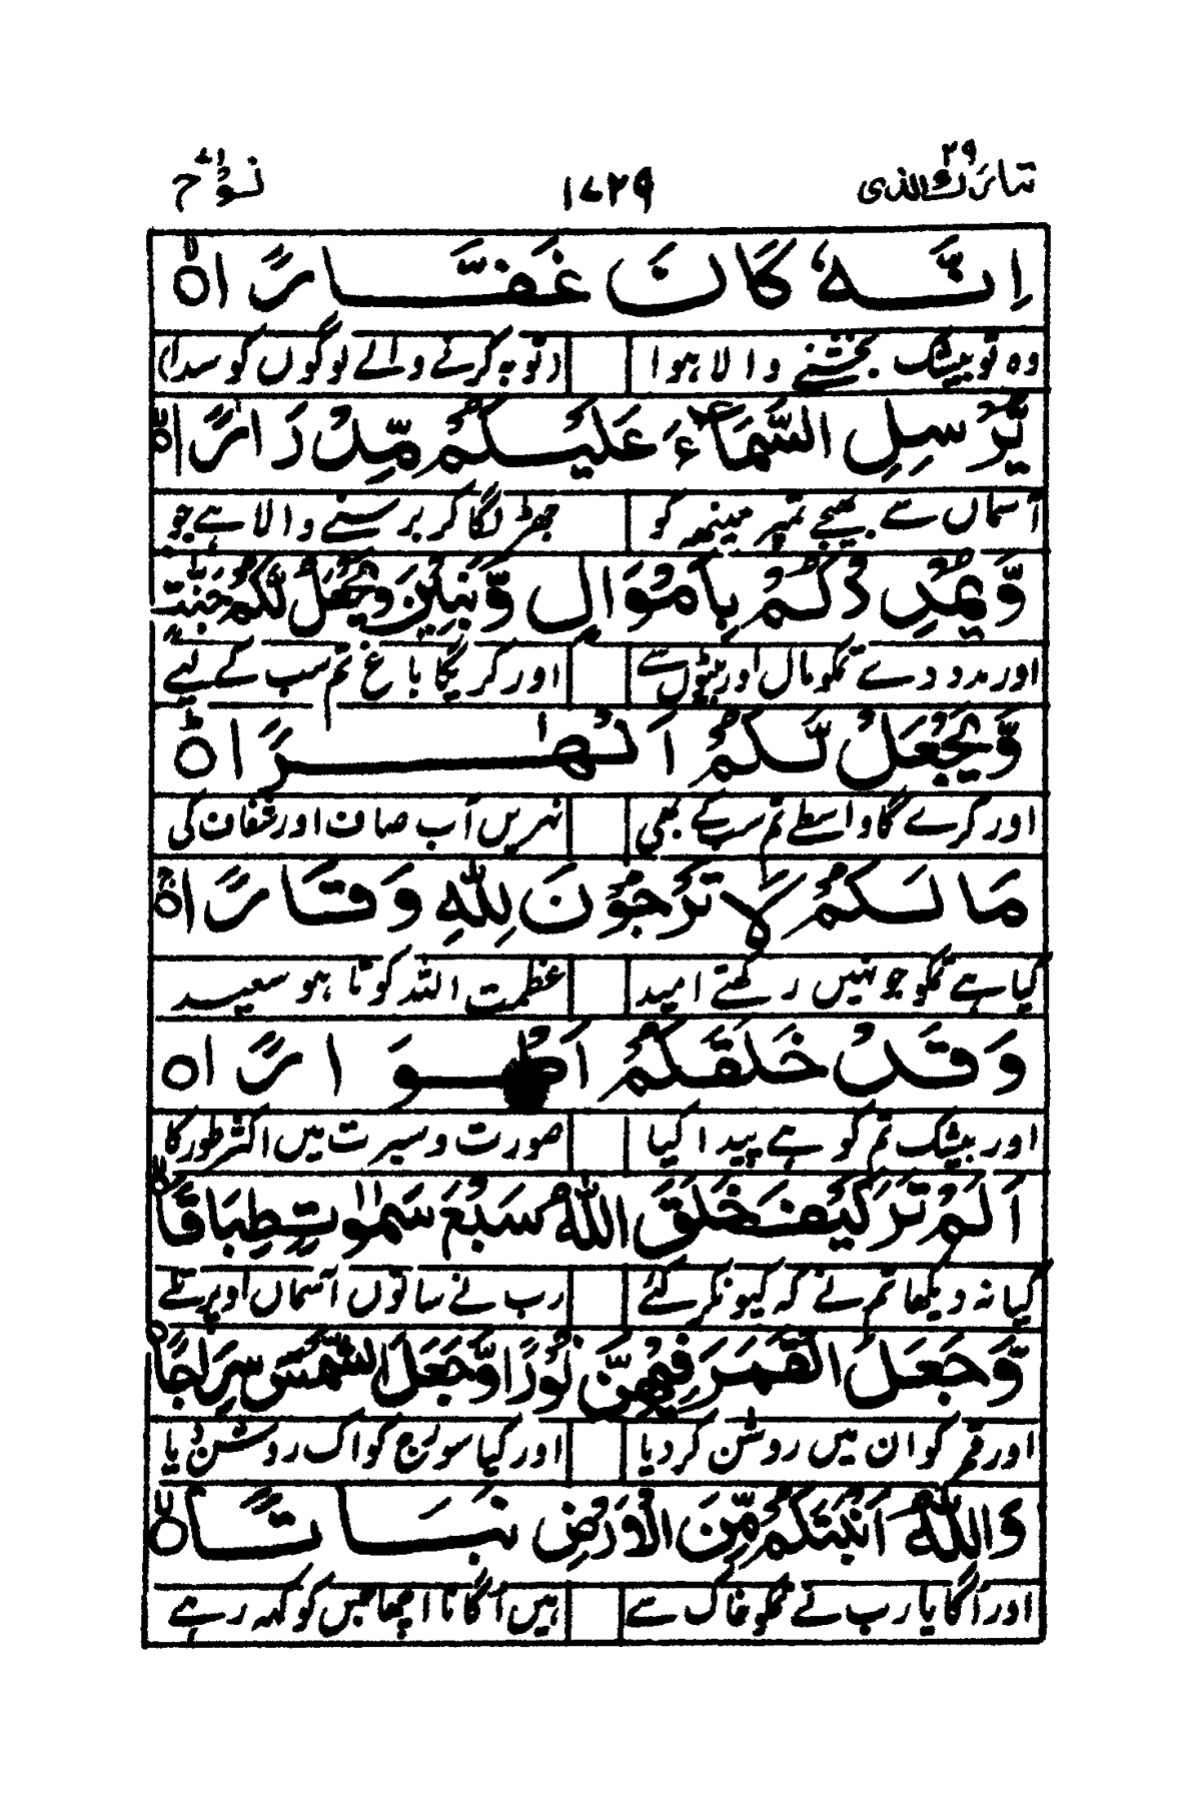 تبارك الذی ۲۹ ۱۷۲۹ نوح ۷۱
اِنَّهٗ كَانَ غَفَّارًا ۝
وہ تو بیشک بخشنے والا ہوا (توبہ کرنے والے لوگوں کو سدا)
يُّرْسِلِ السَّمَآءَ عَلَيْكُمْ مِّدْرَارًا ۝
آسماں سے بھیجے تمپر مینھہ کو جھڑ لگا کر برسنے والا ہے جو
وَّيُمْدِدْكُمْ بِاَمْوَالٍ وَّبَنِيْنَ وَيَجْعَلْ لَّكُمْ جَنّٰتٍ
اور مدد دے تمکو مال اور بیٹوں سے اور کریگا باغ تم سب کے لیے
وَّيَجْعَلْ لَّكُمْ اَنْهٰرًا ۝
اور کرے گا واسطے تم سب کے بھی نہریں آب صاف اور شفاف کی
مَا لَكُمْ لَا تَرْجُوْنَ لِلّٰهِ وَقَارًا ۝
کیا ہے تمکو جو نہیں رکھتے امید عظمت اللہ کو تا ہو سعید
وَقَدْ خَلَقَكُمْ اَطْوَارًا ۝
اور بیشک تم کو ہے پیدا کیا صورت و سیرت میں اکثر طور کا
اَلَمْ تَرَ كَيْفَ خَلَقَ اللّٰهُ سَبْعَ سَمٰوٰتٍ طِبَاقًا
کیا نہ دیکھا تم نے کہ کیونکر کئے رب نے ساتوں آسماں اوپر تلے
وَّجَعَلَ الْقَمَرَ فِيْهِنَّ نُوْرًا وَّجَعَلَ الشَّمْسَ سِرَاجًا
اور قمر کو ان میں روشن کر دیا اور کیا سورج کو اک روشن دیا
وَاللّٰهُ اَنْۢبَتَكُمْ مِّنَ الْاَرْضِ نَبَاتًا ۝
اور اُگایا رب نے تمکو خاک سے ہیں اُگانا اچھا جس کو کہہ رہے